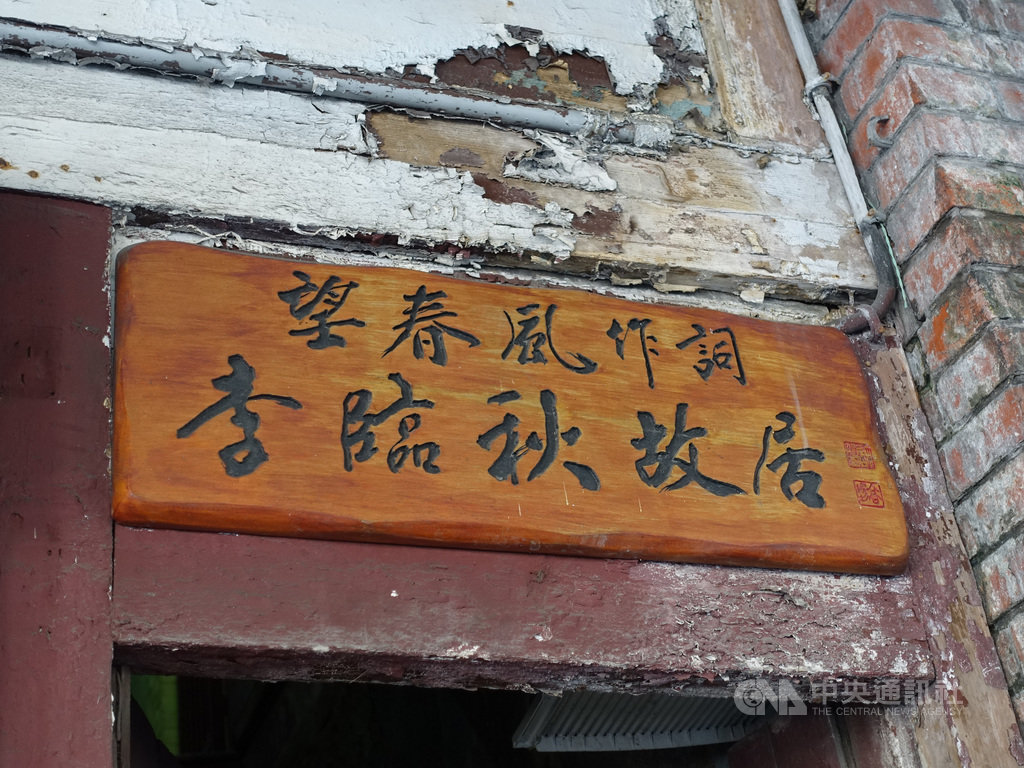 望春風作詞
李臨秋故居
CNA 中央通訊社
THE CENTRAL NEWS AGENCY